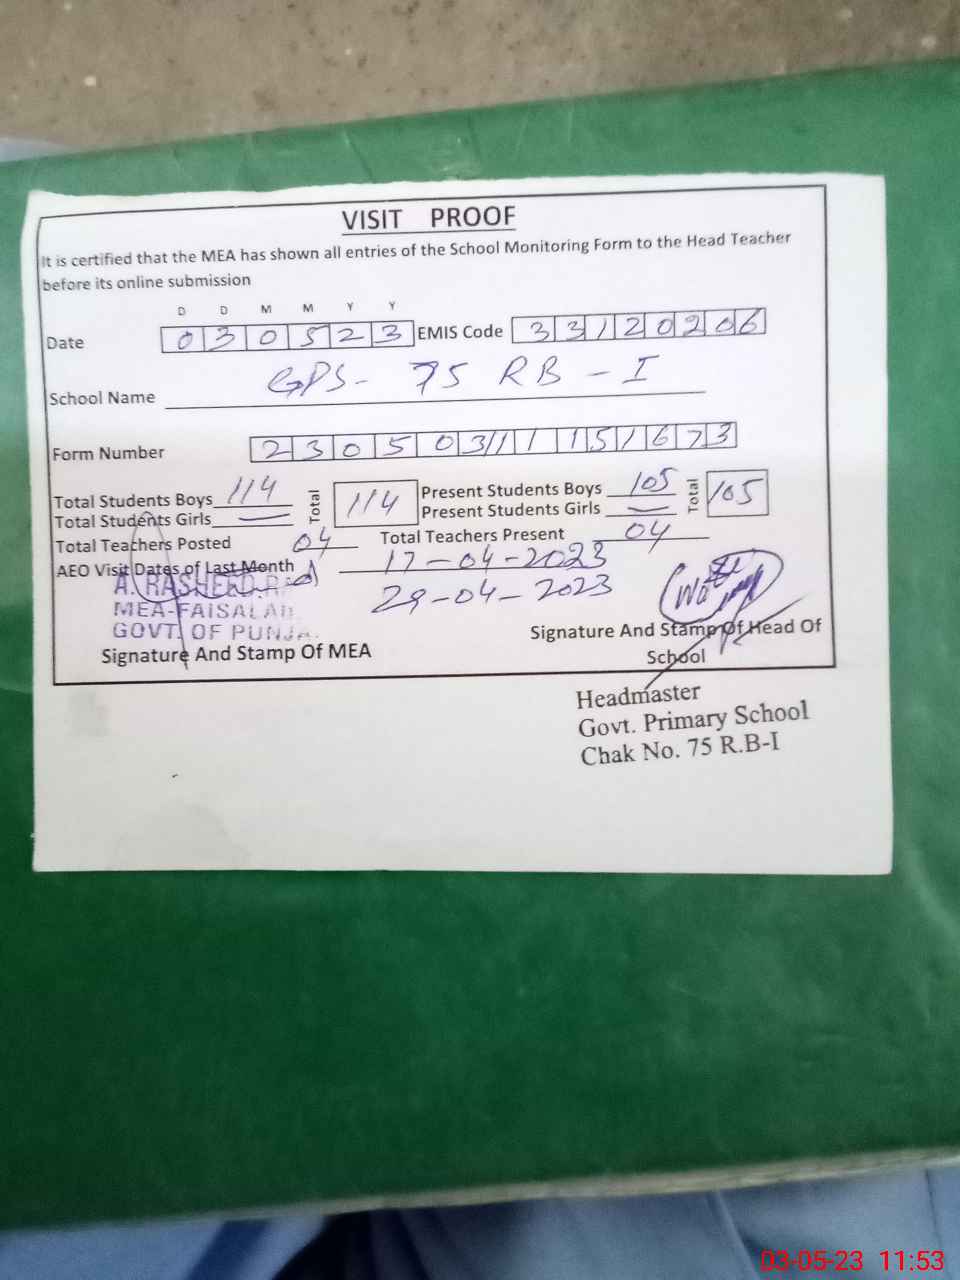 VISIT PROOF
It is certified that the MEA has shown all entries of the School Monitoring Form to the Head Teacher
before its online submission
D D M M Y Y
Date 0 3 0 5 2 3 EMIS Code 3 3 1 2 0 2 0 6
School Name GPS - 75 RB - I
Form Number 2 3 0 5 0 3 1 1 1 5 1 6 7 3
Total Students Boys 114 Total 114 Present Students Boys 105 Total 105
Total Students Girls — Present Students Girls —
Total Teachers Posted 04 Total Teachers Present 04
AEO Visit Dates of Last Month 17-04-2023
29-04-2023
A. RASHEED
MEA-FAISALAB
GOVT. OF PUNJA
Signature And Stamp Of MEA
Signature And Stamp Of Head Of
School
Headmaster
Govt. Primary School
Chak No. 75 R.B-I
03-05-23 11:53